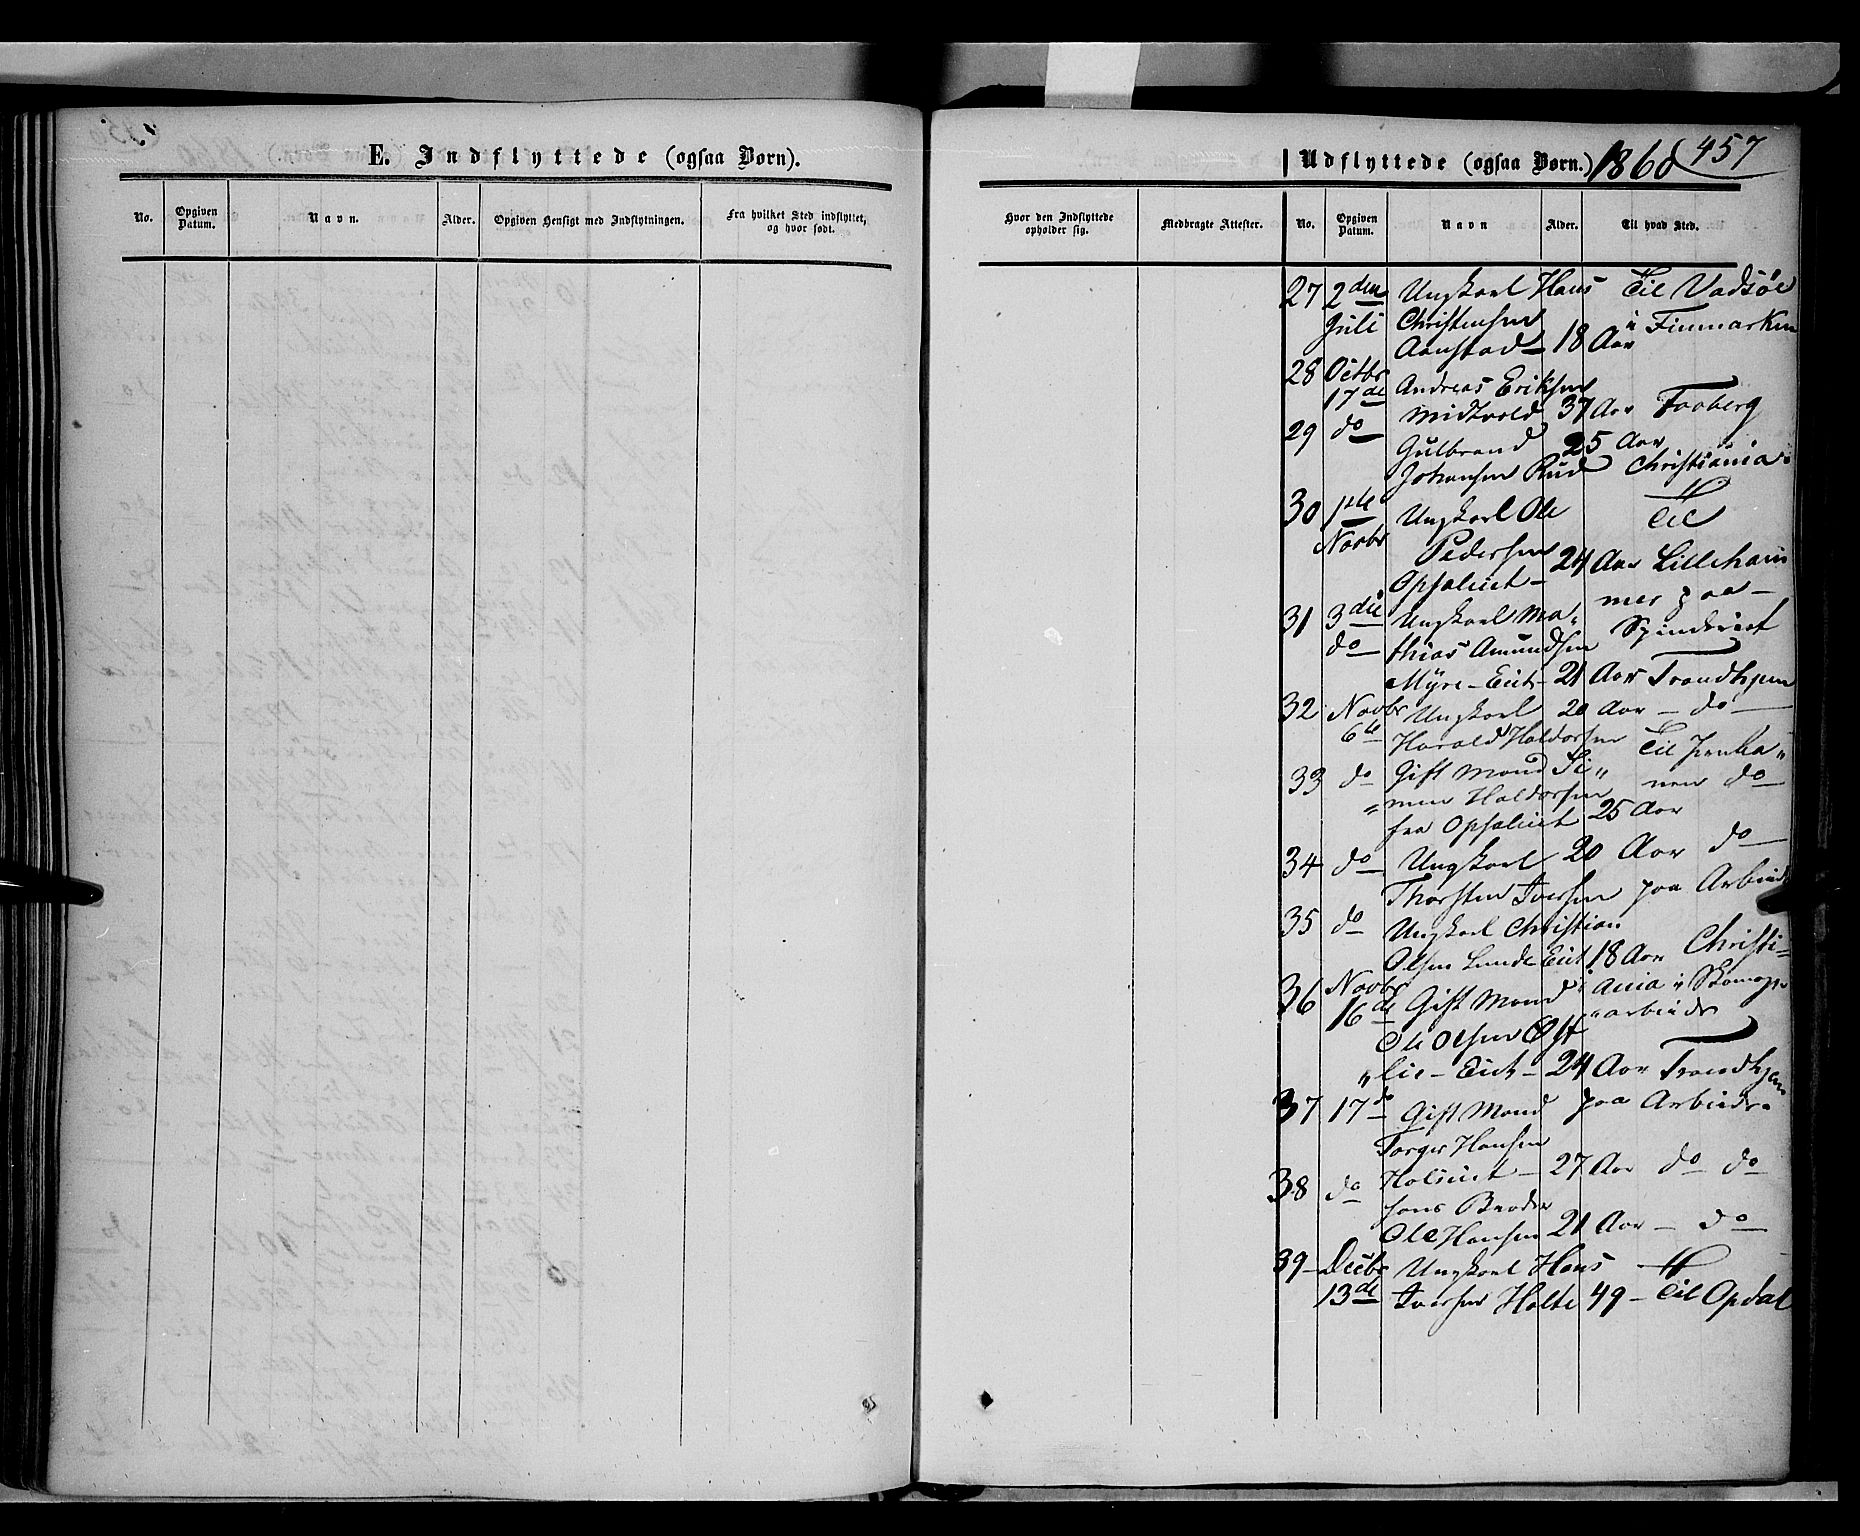 E. Indflyttede (ogsaa Børn).
No.
Opgiven Datum.
Navn.
Alder.
Opgiven Hensigt med Indflytningen.
Fra hvilket Sted indflyttet, og hvor født.
Udflyttede (ogsaa Børn.) 1860 457
Hvor den Indflyttede opholder sig.
Medbragte Attester.
No.
Opgiven Datum.
Navn
Alder.
Til hvad Sted.
27 2den Ungkarl Hans Til Vadsöe
Juli Christensen i Finmarken
Aanstad 18 Aar
28 Octbr Andreas Eriksen
17de Midtvold 37 Aar Faaberg
29 do Gulbrand 25 Aar
Johansen Rud Christiania
30 1ste Ungkarl Ole Til
Novbr Pedersen 24 Aar Lilleham
Opsaliet mer paa
31 3die Ungkarl Ma- Spinderiet
do thias Amundsen
Myre-Eiet 21 Aar Trondhjem
32 Novbr Ungkarl 20 Aar do
6te Harald Haldorsen Til Jernba
33 do Gift Mand Si nen do
men Haldorsen
fra Opsaliet 25 Aar
34 do Ungkarl 20 Aar do
Thorsten Iversen paa Arbeide
35 do Ungkarl Christian
Olsen Lunde Eiet 18 Aar Christi-
36 Novbr Gift Mand ania i Skomager
16de Ole Olsen Øst arbeide
lie-Eiet 24 Aar Trondhjem
37 17de Gift Mand paa Arbeide
Torger Hansen
Holsiet 27 Aar do do
38 do hans Broder
Ole Hansen 21 Aar do
39 Decbr Ungkarl Hans
13de Iversen Holte 49 Til Opdal